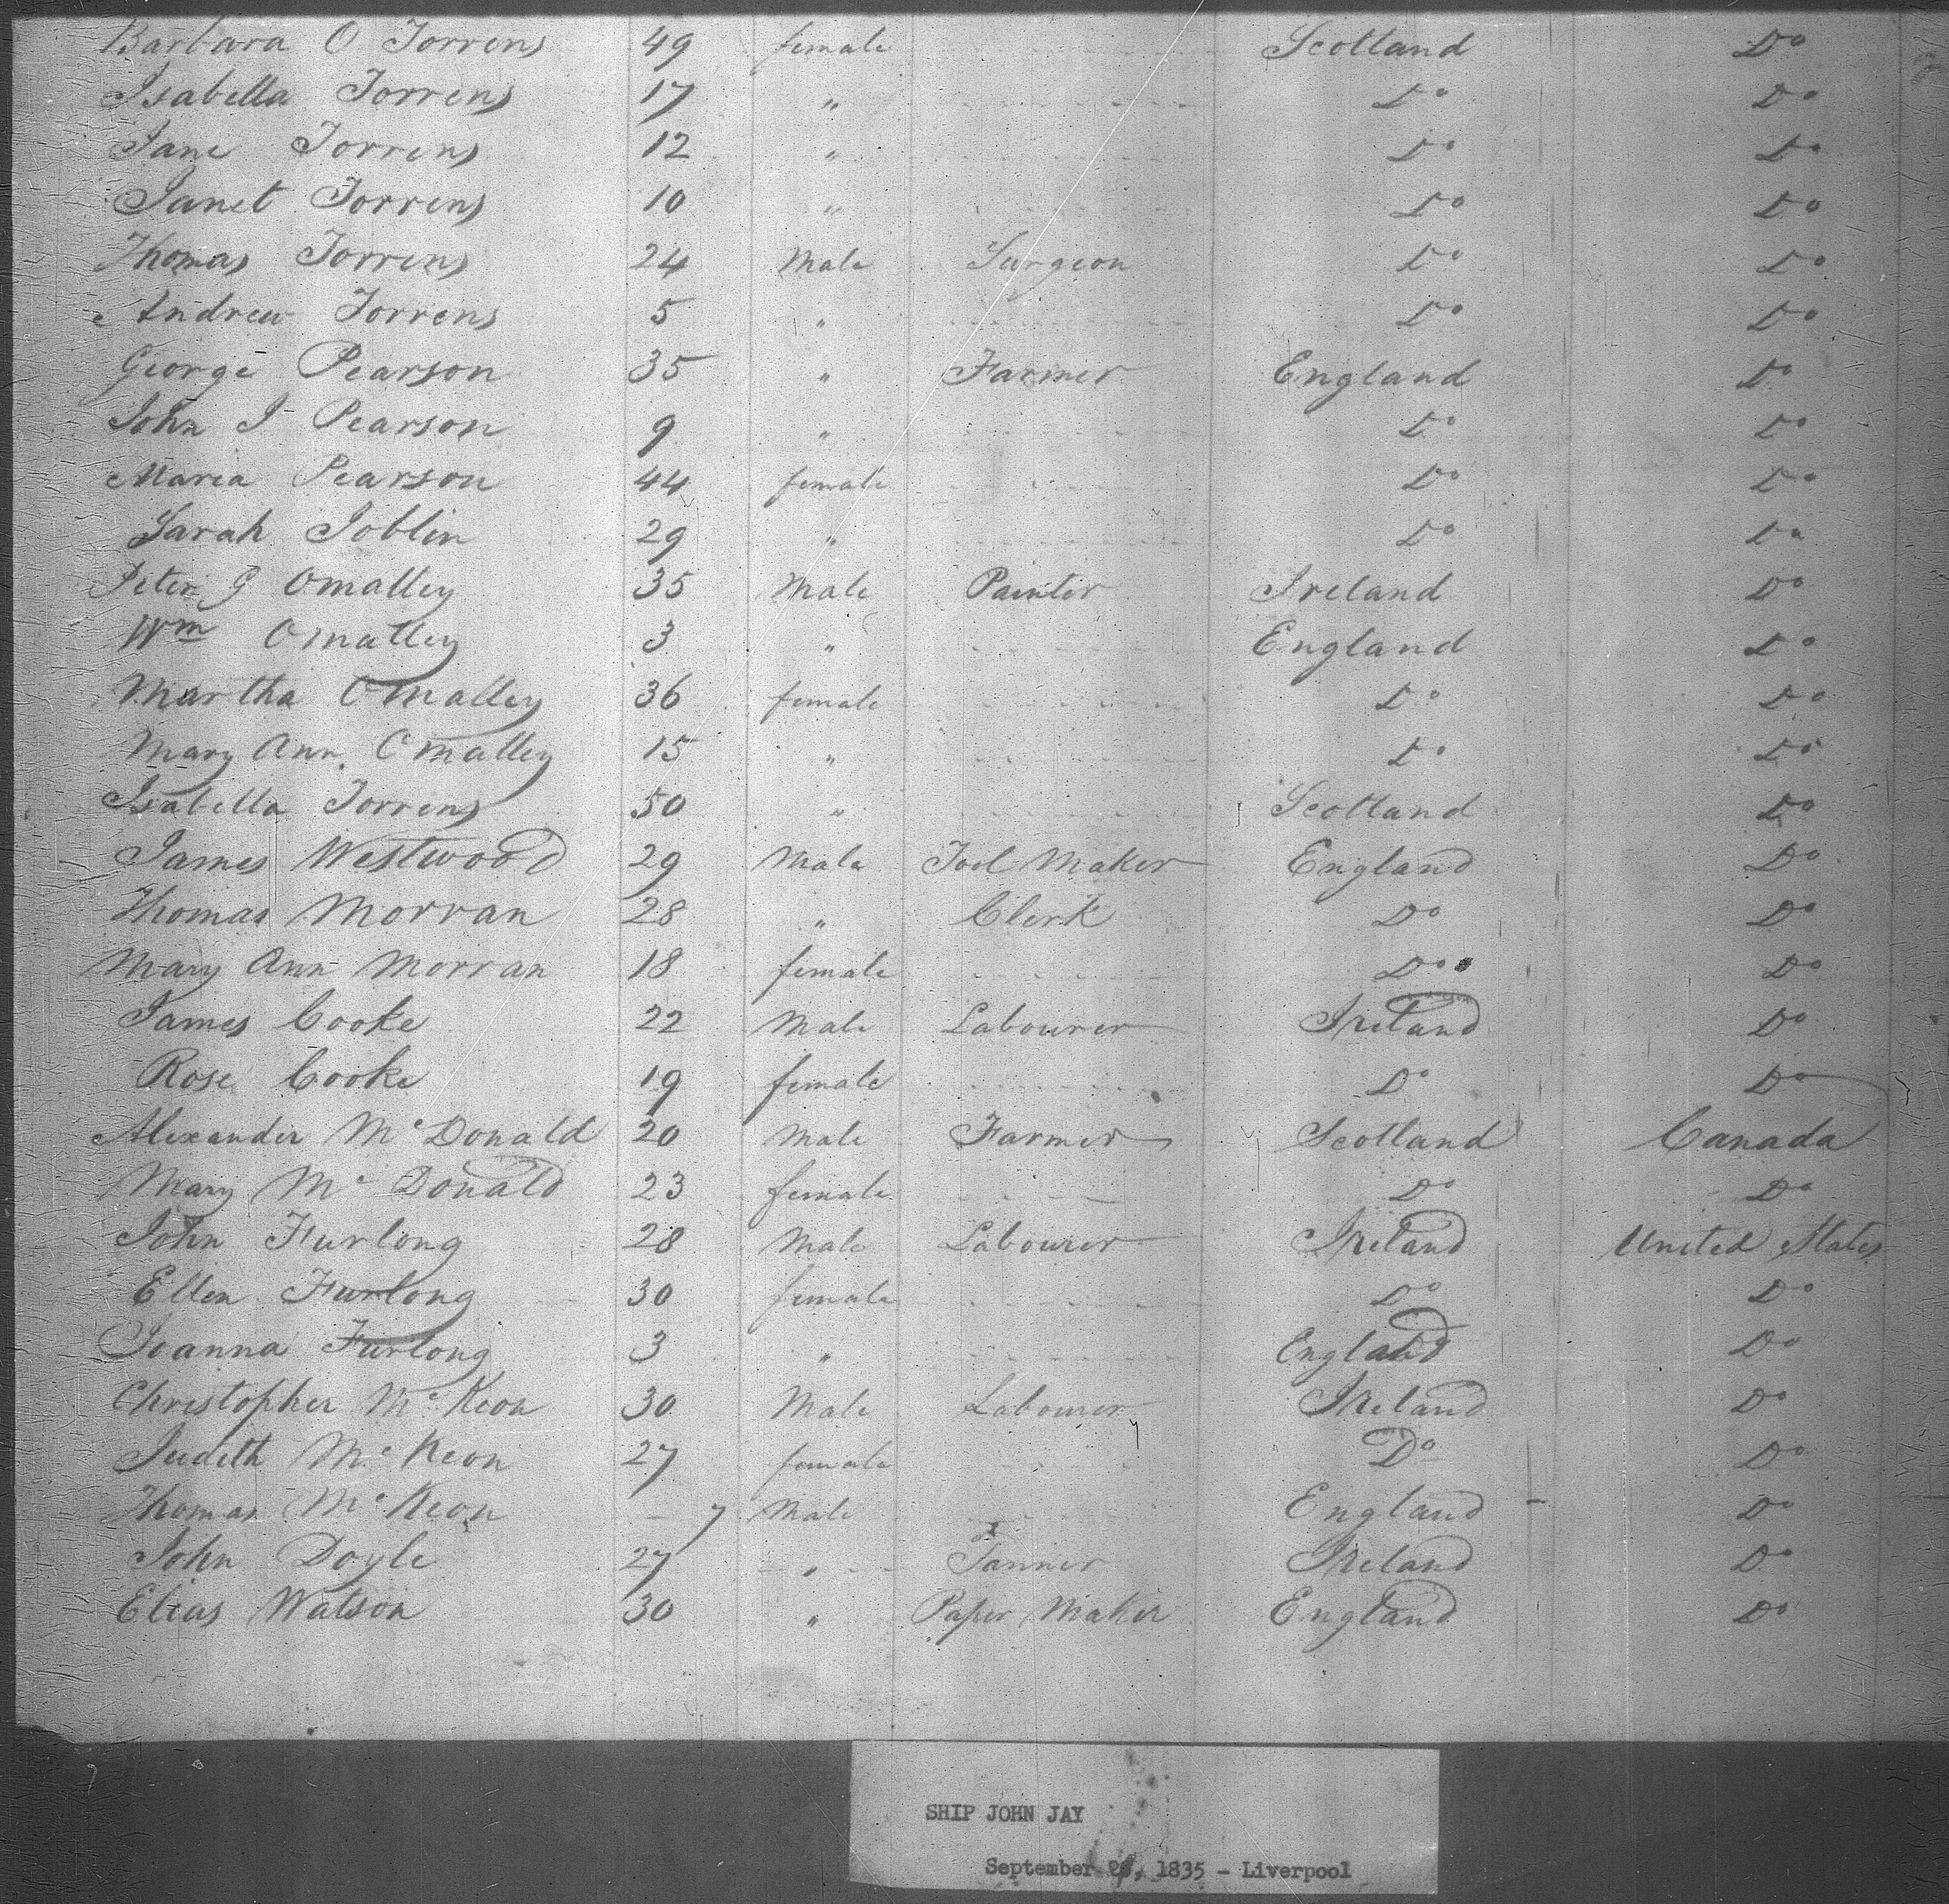 Barbara O Torrens 49 female Scotland Do
Isabella Torrens 17 " Do Do
Jane Torrens 12 " Do Do
Janet Torrens 10 " Do Do
Thomas Torrens 24 Male Surgeon Do Do
Andrew Torrens 5 " Do Do
George Pearson 35 " Farmer England Do
John J Pearson 9 " Do Do
Maria Pearson 44 female Do Do
Sarah Joblin 29 " Do Do
Peter G Omalley 35 Male Painter Ireland Do
Wm Omalley 3 " England Do
Martha Omalley 36 female Do Do
Mary Ann Omalley 15 " Do Do
Isabella Torrens 50 " Scotland Do
James Westwood 29 Male Tool Maker England Do
Thomas Morran 28 " Clerk Do Do
Mary Ann Morran 18 female Do Do
James Cooke 22 Male Labourer Ireland Do
Rose Cooke 19 female Do Do
Alexander McDonald 20 Male Farmer Scotland Canada
Mary McDonald 23 female Do Do
John Furlong 28 Male Labourer Ireland United States
Ellen Furlong 30 female Do Do
Joanna Furlong 3 " England Do
Christopher McKeon 30 Male Labourer Ireland Do
Judith McKeon 27 female Do Do
Thomas McKeon - 7 Male England Do
John Doyle 27 " Tanner Ireland Do
Elias Watson 30 " Paper Maker England Do
SHIP JOHN JAY
September , 1835 - Liverpool